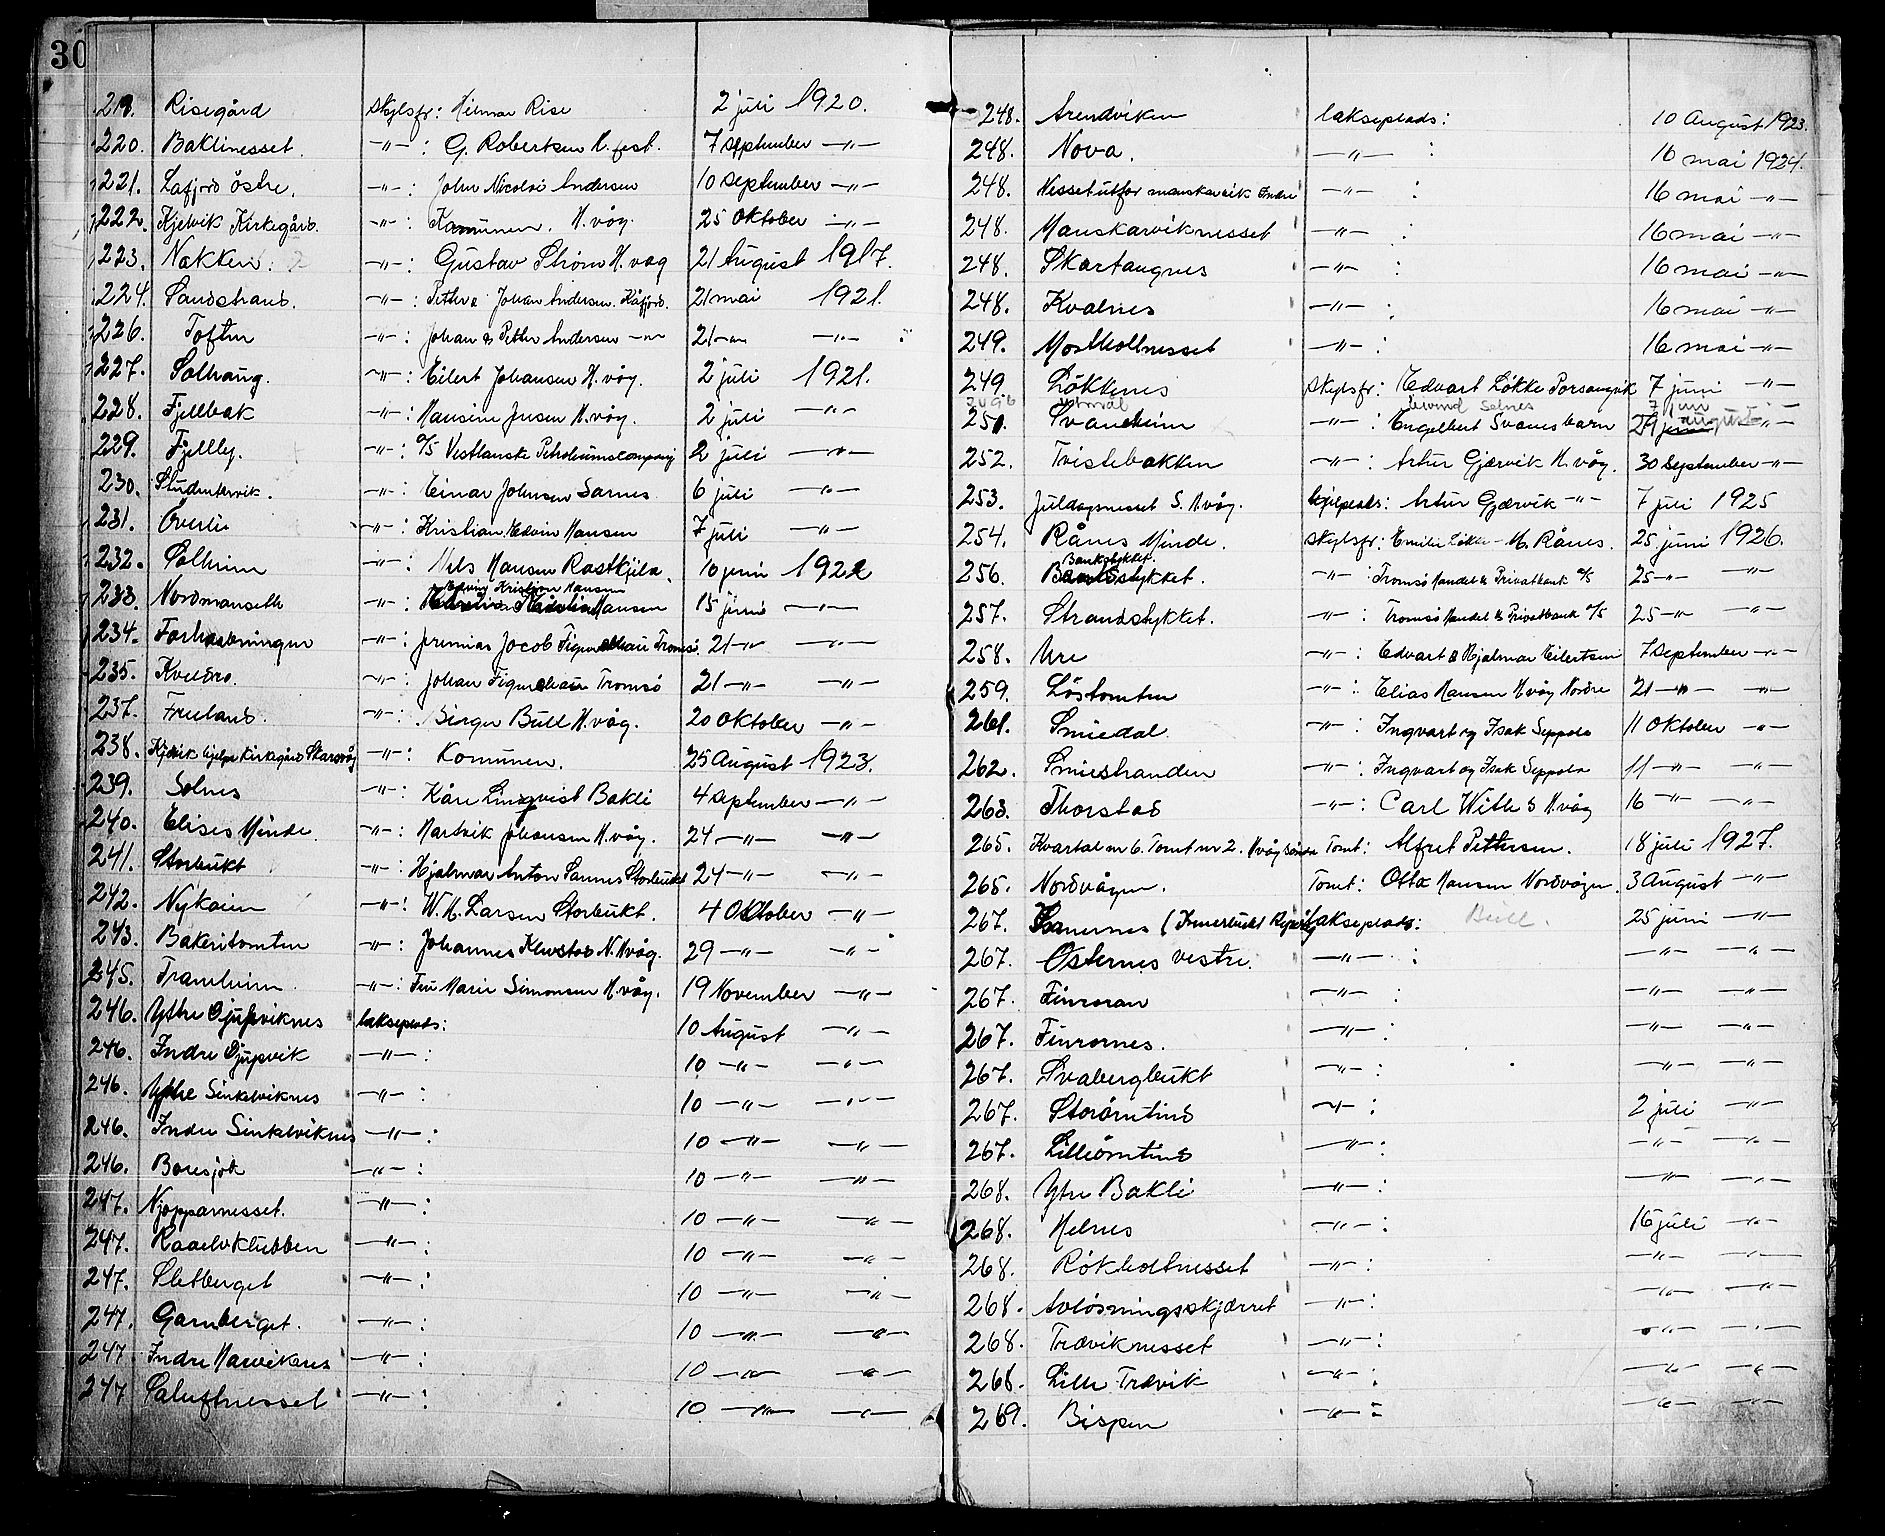 30
219. Risegård Skylsfr: Hilmar Rise 2 juli 1920.
220. Baklinesset. —"— : G. Robertsen H.fest. 7 september —"—
221. Lafjord östre. —"— : John Nicolai Andersen 10 september —"—
222. Kjelvik Kirkegård. —"— : Kommunen. H.våg. 25 oktober —"—
223. Nakken. —"— : Gustav Strøm H.vag 21 August 1917.
224. Sandstrand. —"— : Petter & Johan Andersen. Kåfjord. 21 mai 1921.
226. Toften —"— : Johan & Petter Andersen —"— 21 —"— —"—
227. Solhaug. —"— : Eilert Johansen H.våg. 2 juli 1921.
228. Fjellbak —"— : Hansine Jensen H.våg. 2 juli —"—
229. Fjellby. —"— : A/S Vestlanske Petroleumscompany 2 juli —"—
230. Studentervik. —"— : Einar Johnsen Sarnes 6 juli —"—
231. Överli —"— : Kristian Edvin Hansen 7 juli —"—
232. Solheim —"— : Nils Hansen Rastkjila. 10 juni 1922
233. Nordmanseth —"— : Hansen 15 juni —"—
234. Forhåbningen —"— : Jeremias Jacob Figenschau Tromsö. 21 —"— —"—
235. Kvelbro. —"— : Johan Figenschau Tromsö 21 —"— —"—
237. Freeland. —"— : Birger Bull H.våg. 20 oktober —"—
238. Kjelvik hjelpe Kirkegård Skarsvåg —"— : Komunen. 25 August 1923.
239. Solnes —"— : Kåre Linqvist Bakli 4 september —"—
240. Elises Minde —"— : Hartvik Johansen H.våg. 24 —"— —"—
241. Storbukt —"— : Hjalmar Anton Sannes Storbukt 24 —"— —"—
242. Nykaien —"— : W. H. Larsen Storbukt. 4 Oktober —"—
243. Bakeritomten —"— : Johannes Klevstad N. H.våg. 29 —"— —"—
245. Framheim —"— : Fru Marie Simonsen H.våg. 19 November —"—
246. Ytre Djupviknes lakseplads: 10 August —"—
246. Indre Djupvik —"— : 10 —"— —"—
246. Ytre Sinkelviknes —"— : 10 —"— —"—
246. Indre Sinkelviknes —"— : 10 —"— —"—
246. Boresjok —"— : 10 —"— —"—
247. Njopparnesset. —"— : 10 —"— —"—
247. Raaelvklubben —"— : 10 —"— —"—
247. Sletberget —"— : 10 —"— —"—
247. Garnberget. —"— : 10 —"— —"—
247 Indre Harvikenes —"— : 10 —"— —"—
247 Saluftnesset —"— : 10 —"— —"—
248. Arendviken lakseplads: 10 August 1923.
248. Nova. —"— : 16 mai 1924.
248. Nesset utfor manskarvik Indre —"— : 16 mai —"—
248. Manskarviknesset —"— : 16 mai —"—
248. Skartaugnes —"— : 16 mai —"—
248. Kvalnes —"— : 16 mai —"—
249. Mostholtnesset —"— : 16 mai —"—
249. Løkkenes Skylsfr: Edvart Løkke Porsangvik 7 juni —"—
251. Svaneheim —"— : Engelbert Svanes barn 29 august —"—
252. Tvistebakken —"— : Artur Gjærvik H.våg. 30 September —"—
253. Juldagsnesset S. H.våg. Artur Gjærvik —"— 7 juli 1925
254. Rånes Minde. Skylsfr: Emilie Løkke - M. Rånes. 25 juni 1926.
Bankstykket.
256. Bankstykket. —"— : Tromsö Handel & Privatbank A/S 25 —"— —"—
257. Strandstykket. —"— : Tromsö Handel & Privatbank A/S 25 —"— —"—
258. Ure —"— : Edvart & Hjalmar Eilertsen 7 september —"—
259. Löstomten —"— : Elias Hansen H.våg Nordre 21 —"— —"—
261. Smiedal —"— : Ingvart og Isak Seppola 11 Oktober —"—
262. Smiestranden —"— : Ingvart og Isak Seppola 11 —"— —"—
263. Thorstad —"— : Carl With & H.våg 16 —"— —"—
265. Kvartal nr 6. Tomt nr 2. H.våg Søndre Tomt: Alfret Pettersen. 18 juli 1927.
265. Nordvågen. Tomt: Otto Hansen Nordvågen. 3 August —"—
267. lakseplads: Bull. 25 juni —"—
267. Østernes vestre. —"— : —"— —"—
267. Finroran —"— : —"— —"—
267. Finrornes. —"— : —"— —"—
267. Svabergbukt —"— : —"— —"—
267. Storörntind —"— : 2 juli —"—
267. Lilleörntind —"— : —"— —"—
268. Ytre Bakli —"— : —"— —"—
268. Helnes —"— : 16 juli —"—
268. Rökholtnesset —"— : —"— —"—
268. Avlösningsskjærret —"— : —"— —"—
268. Træviknesset —"— : —"— —"—
268. Lille Trævik —"— : —"— —"—
269. Bispen —"— : —"— —"—